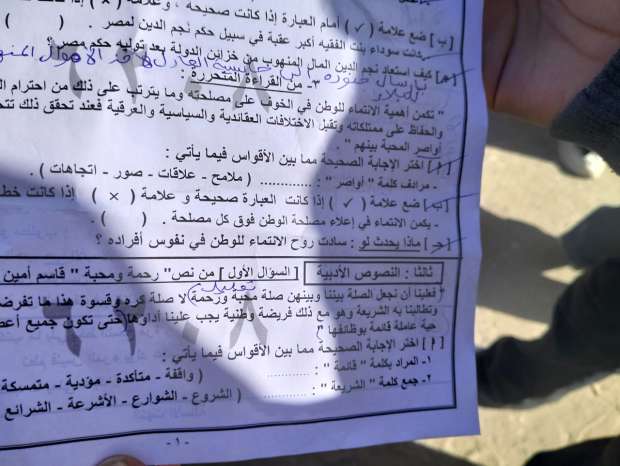 [ب] ضع علامة ( ✓ ) أمام العبارة إذا كانت صحيحه ، وعلامة ( × )
كانت سوداء بنت الفقيه أكبر عقبة في سبيل حكم نجم الدين لمصر . (
[ج] كيف استعاد نجم الدين المال المنهوب من خزائن الدولة بعد توليه حكم مصر ؟
بإرسال جنوده إلى
٣- من القراءة المتحررة :
" تكمن أهمية الانتماء للوطن في الخوف على مصلحته وما يترتب على ذلك من احترام
والحفاظ على ممتلكاته وتقبل الاختلافات العقائدية والسياسية والعرقية فعند تحقق ذلك
أواصر المحبة بينهم " .
[أ] اختر الإجابة الصحيحة مما بين الأقواس فيما يأتي :
- مرادف كلمة " أواصر " : ............ ( ملامح - علاقات - صور - اتجاهات ) .
[ب] ضع علامة ( ✓ ) إذا كانت العبارة صحيحة و علامة ( × ) إذا كانت
- يكمن الانتماء في إعلاء مصلحة الوطن فوق كل مصلحة . ( ) .
[ج] ماذا يحدث لو : سادت روح الانتماء للوطن في نفوس أفراده ؟
ثالثا : النصوص الأدبية [ السؤال الأول ] من نص " رحمة ومحبة " قاسم أمين
تعليل
" فعلينا أن نجعل الصلة بيننا وبينهن صلة محبة ورحمة لا صلة كره وقسوة هذا ما
وتطالبنا به الشريعة وهو مع ذلك فريضة وطنية يجب علينا أداؤها حتى تكون جميع
حية عاملة قائمة بوظائفها "
[أ] اختر الإجابة الصحيحة مما بين الأقواس فيما يأتي :
١- المراد بكلمة " قائمة " : ............ ( واقفة - متأكدة - مؤدية - متمسكة
٢- جمع كلمة " الشريعة " : ............ ( الشروع - الشوارع - الأشرعة - الشرائع
- ١ -